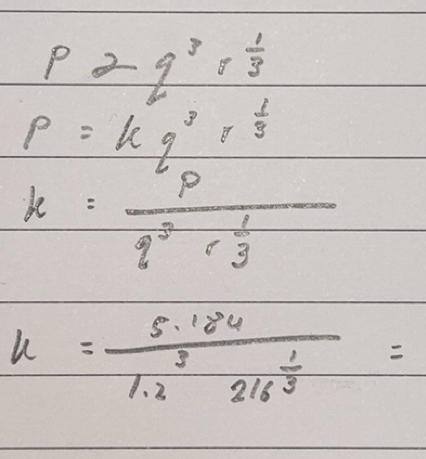 P ∝ q³ r^(1/3)
P = k q³ r^(1/3)
k = P / (q³ r^(1/3))
k = 5.184 / (1.2³ 216^(1/3)) =